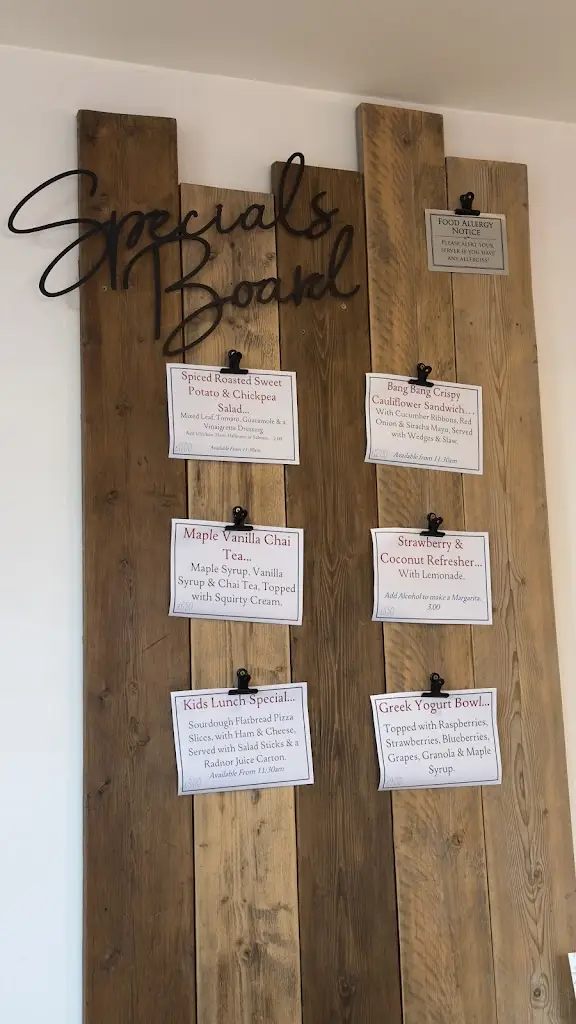 Specials
Board
Food Allergy
Notice
Please alert your
server if you have
any allergies!
Spiced Roasted Sweet
Potato & Chickpea
Salad...
Mixed Leaf, Tomato, Guacamole & a
Vinaigrette Dressing
Available from 11:30am
Bang Bang Crispy
Cauliflower Sandwich...
With Cucumber Ribbons, Red
Onion & Siracha Mayo, Served
with Wedges & Slaw.
Available from 11:30am
Maple Vanilla Chai
Tea...
Maple Syrup, Vanilla
Syrup & Chai Tea, Topped
with Squirty Cream.
Strawberry &
Coconut Refresher...
With Lemonade.
Add Alcohol to make a Margarita.
3.00
Kids Lunch Special...
Sourdough Flatbread Pizza
Slices, with Ham & Cheese,
Served with Salad Sticks & a
Radnor Juice Carton.
Available From 11:30am
Greek Yogurt Bowl...
Topped with Raspberries,
Strawberries, Blueberries,
Grapes, Granola & Maple
Syrup.